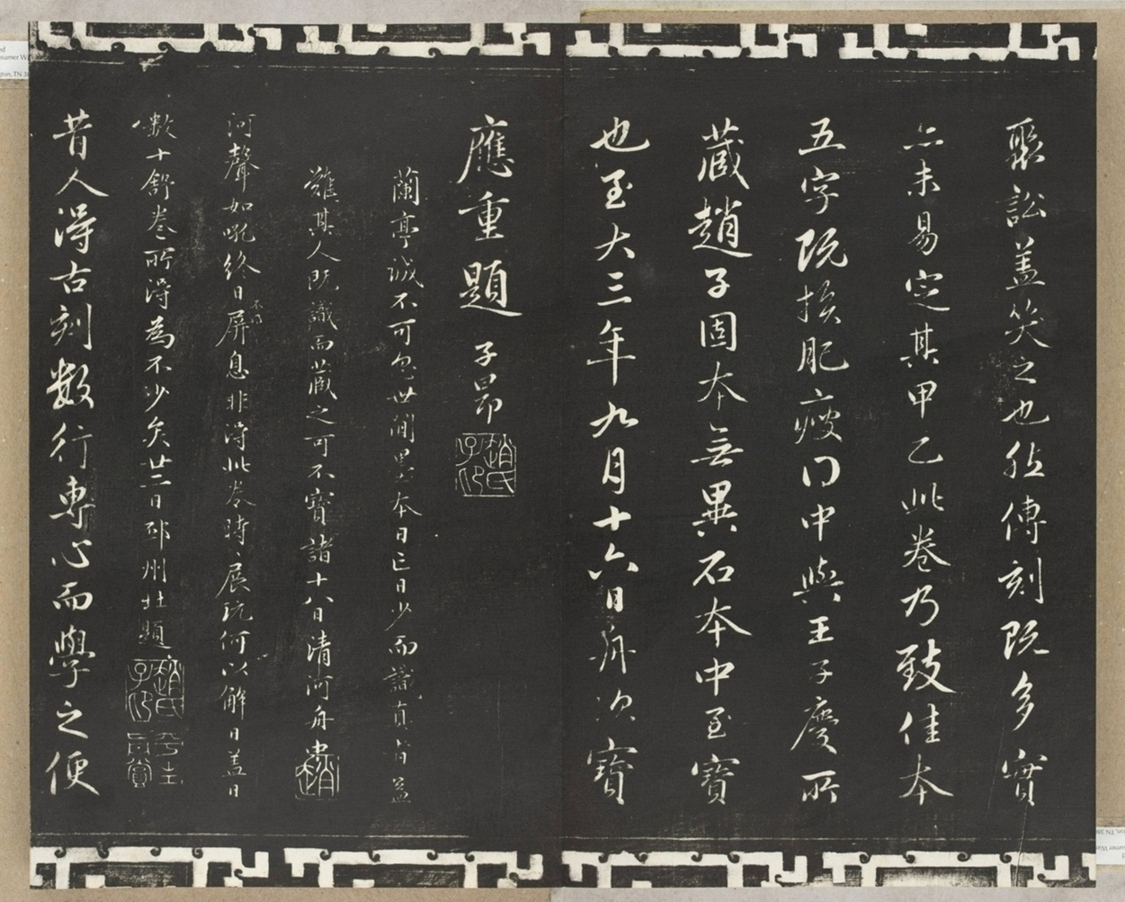 聚訟蓋笑之也然傳刻既多實
亦未易定其甲乙此卷乃致佳本
五字既損肥瘦得中與王子慶所
藏趙子固本無異石本中至寶
也至大三年九月十六日舟次寶
應重題 子昂
趙氏子昂
蘭亭誠不可忽世間墨本日亡日少而識真者益
難其人既識而藏之可不寶諸十八日清河舟中
河聲如吼終日屏息非得此卷時〻展玩何以解日蓋日
數十舒卷所得為不少矣廿二日邳州北題
趙氏子昂
昔人得古刻數行專心而學之便